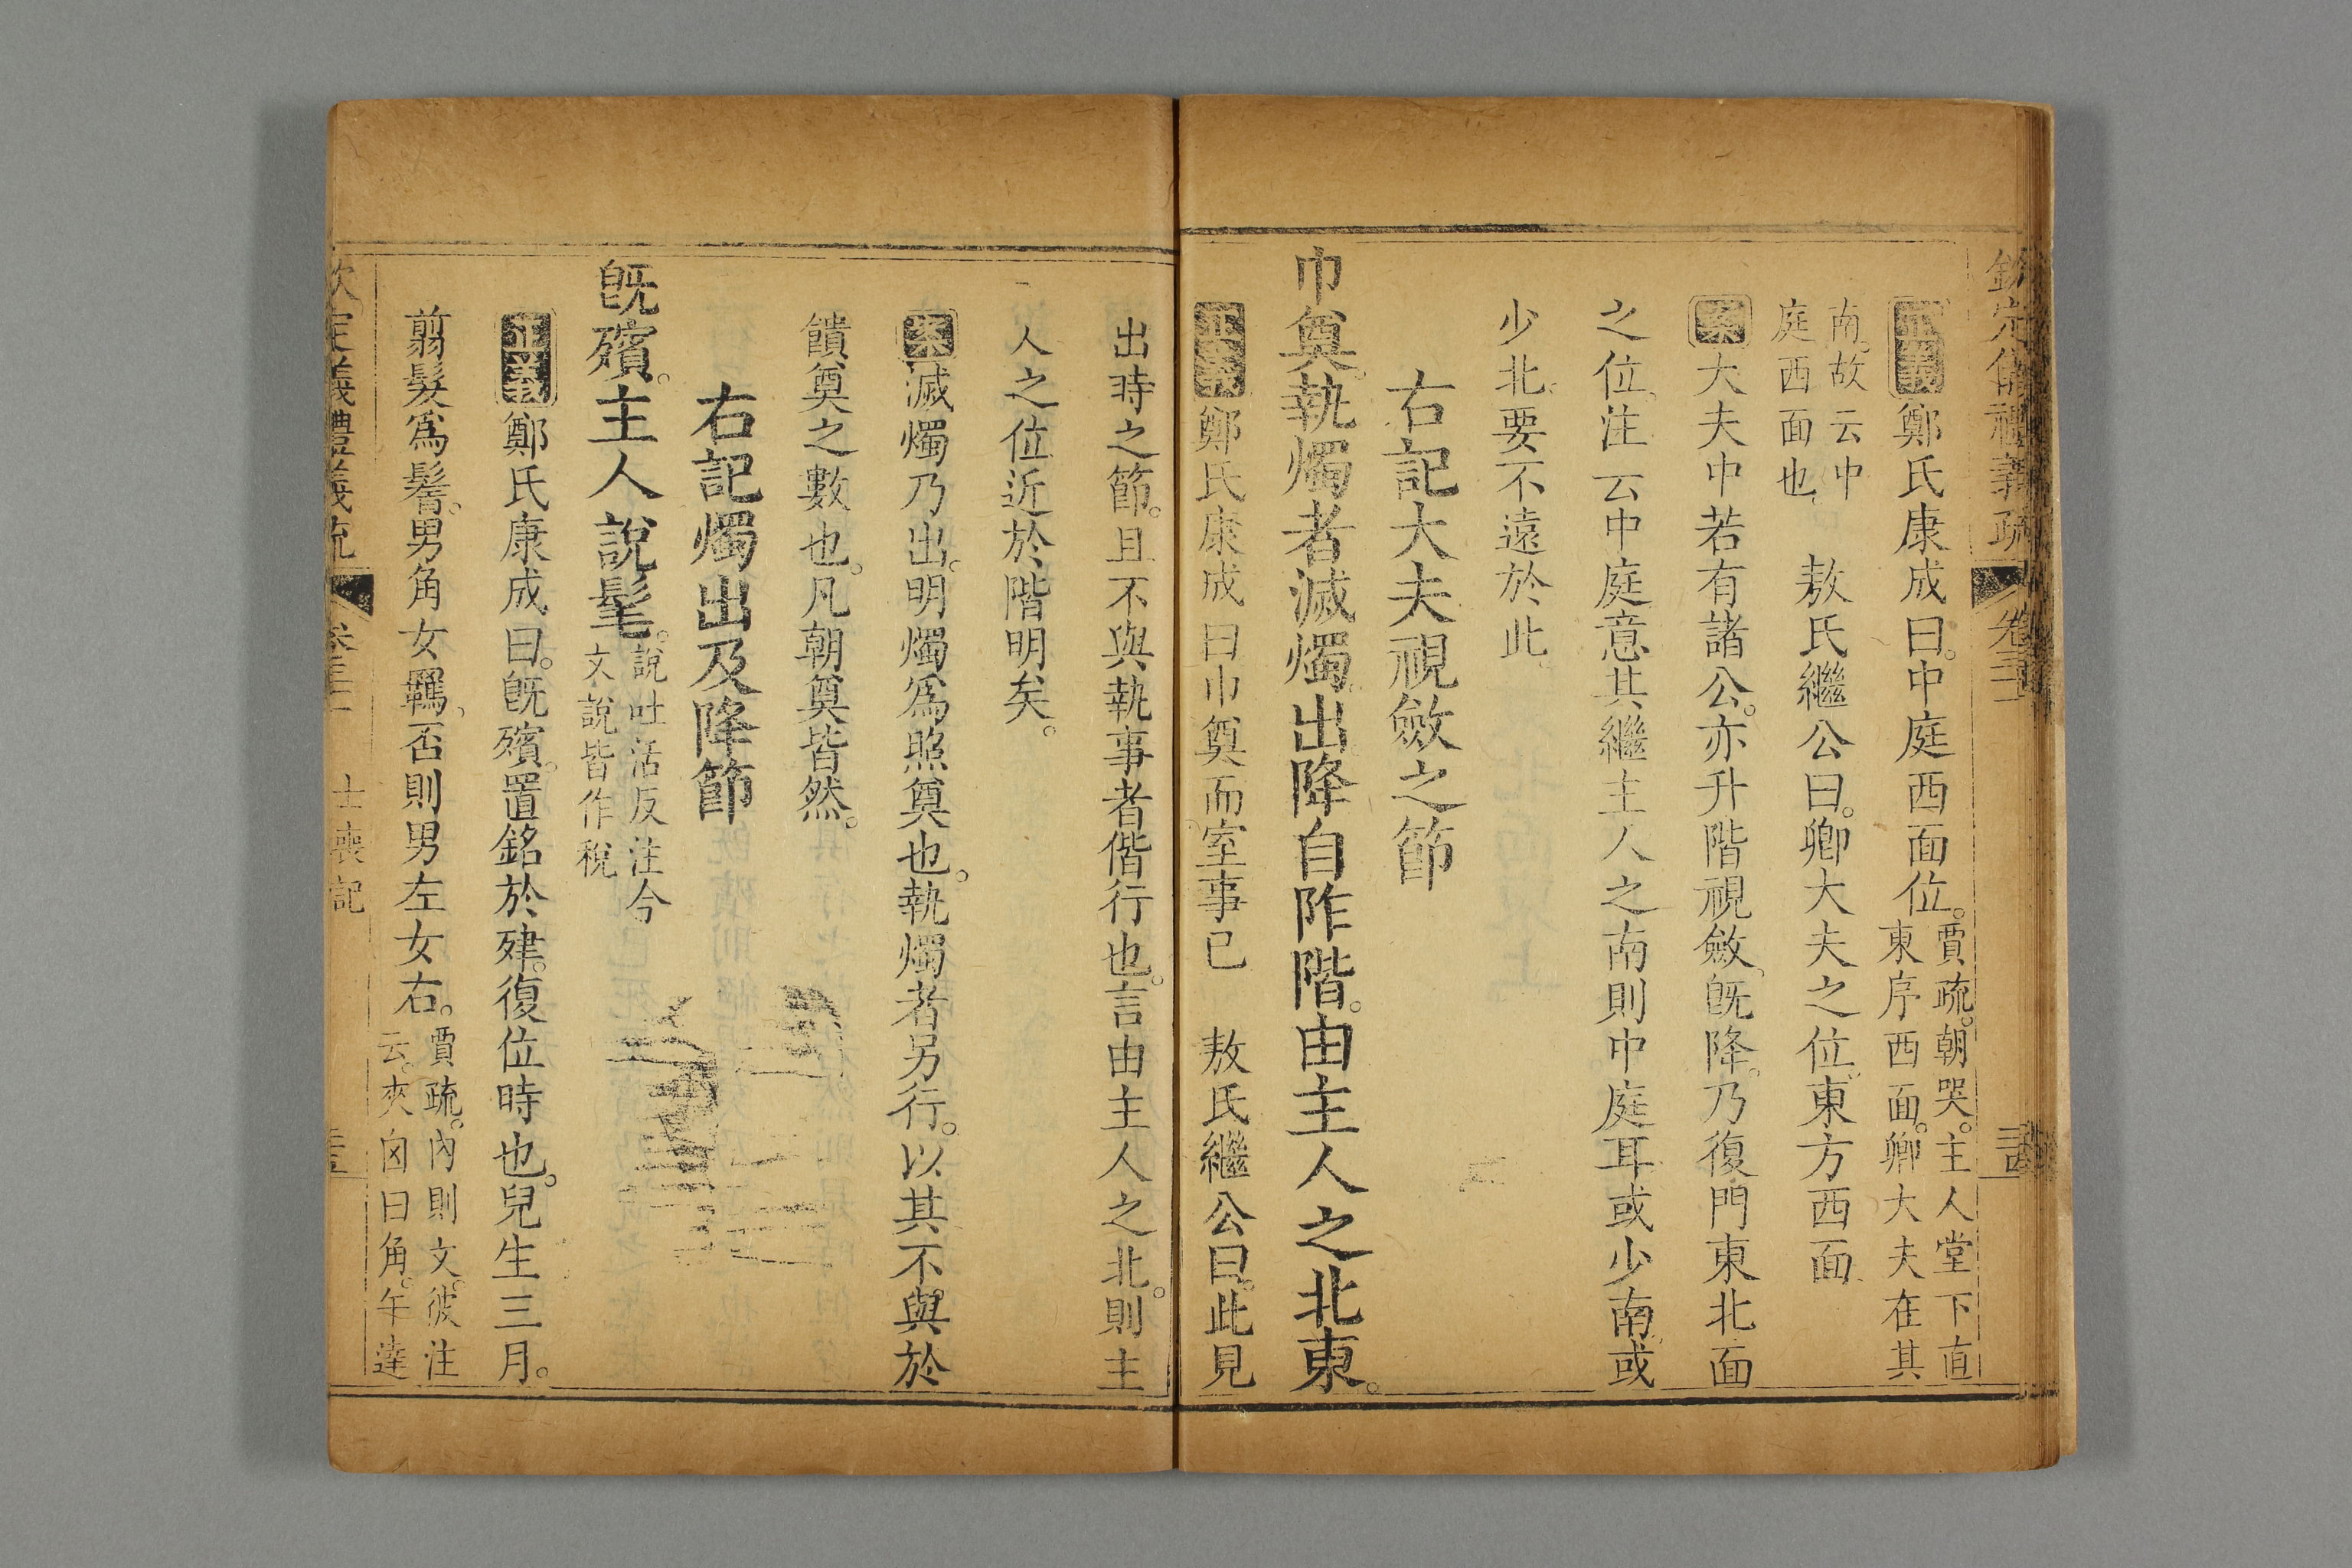 欽定儀禮義疏 卷三十二
正義鄭氏康成曰。中庭西面位。賈疏。朝哭。主人堂下直東序西面。卿大夫在其
南。故云中庭西面也。 敖氏繼公曰。卿大夫之位。東方西面
案大夫中若有諸公。亦升階視斂。旣降。乃復門東北面
之位。注云中庭意其繼主人之南則中庭耳或少南。或
少北。要不遠於此。
右記大夫視斂之節
巾奠。執燭者滅燭。出降自阼階。由主人之北東。
正義鄭氏康成曰巾奠而室事已 敖氏繼公曰。此見
出時之節。且不與執事者偕行也。言由主人之北。則主
人之位近於階明矣。
案滅燭乃出。明燭爲照奠也。執燭者另行。以其不與於
饋奠之數也。凡朝奠皆然。
右記燭出及降節
旣殯。主人說髦。說吐活反注今文說皆作稅
正義鄭氏康成曰。旣殯。置銘於肂。復位時也。兒生三月。
翦髮爲鬌。男角女羈。否則男左女右。賈疏。內則文。彼注云。夾囟曰角。午達
欽定儀禮義疏 卷三十二 士喪記